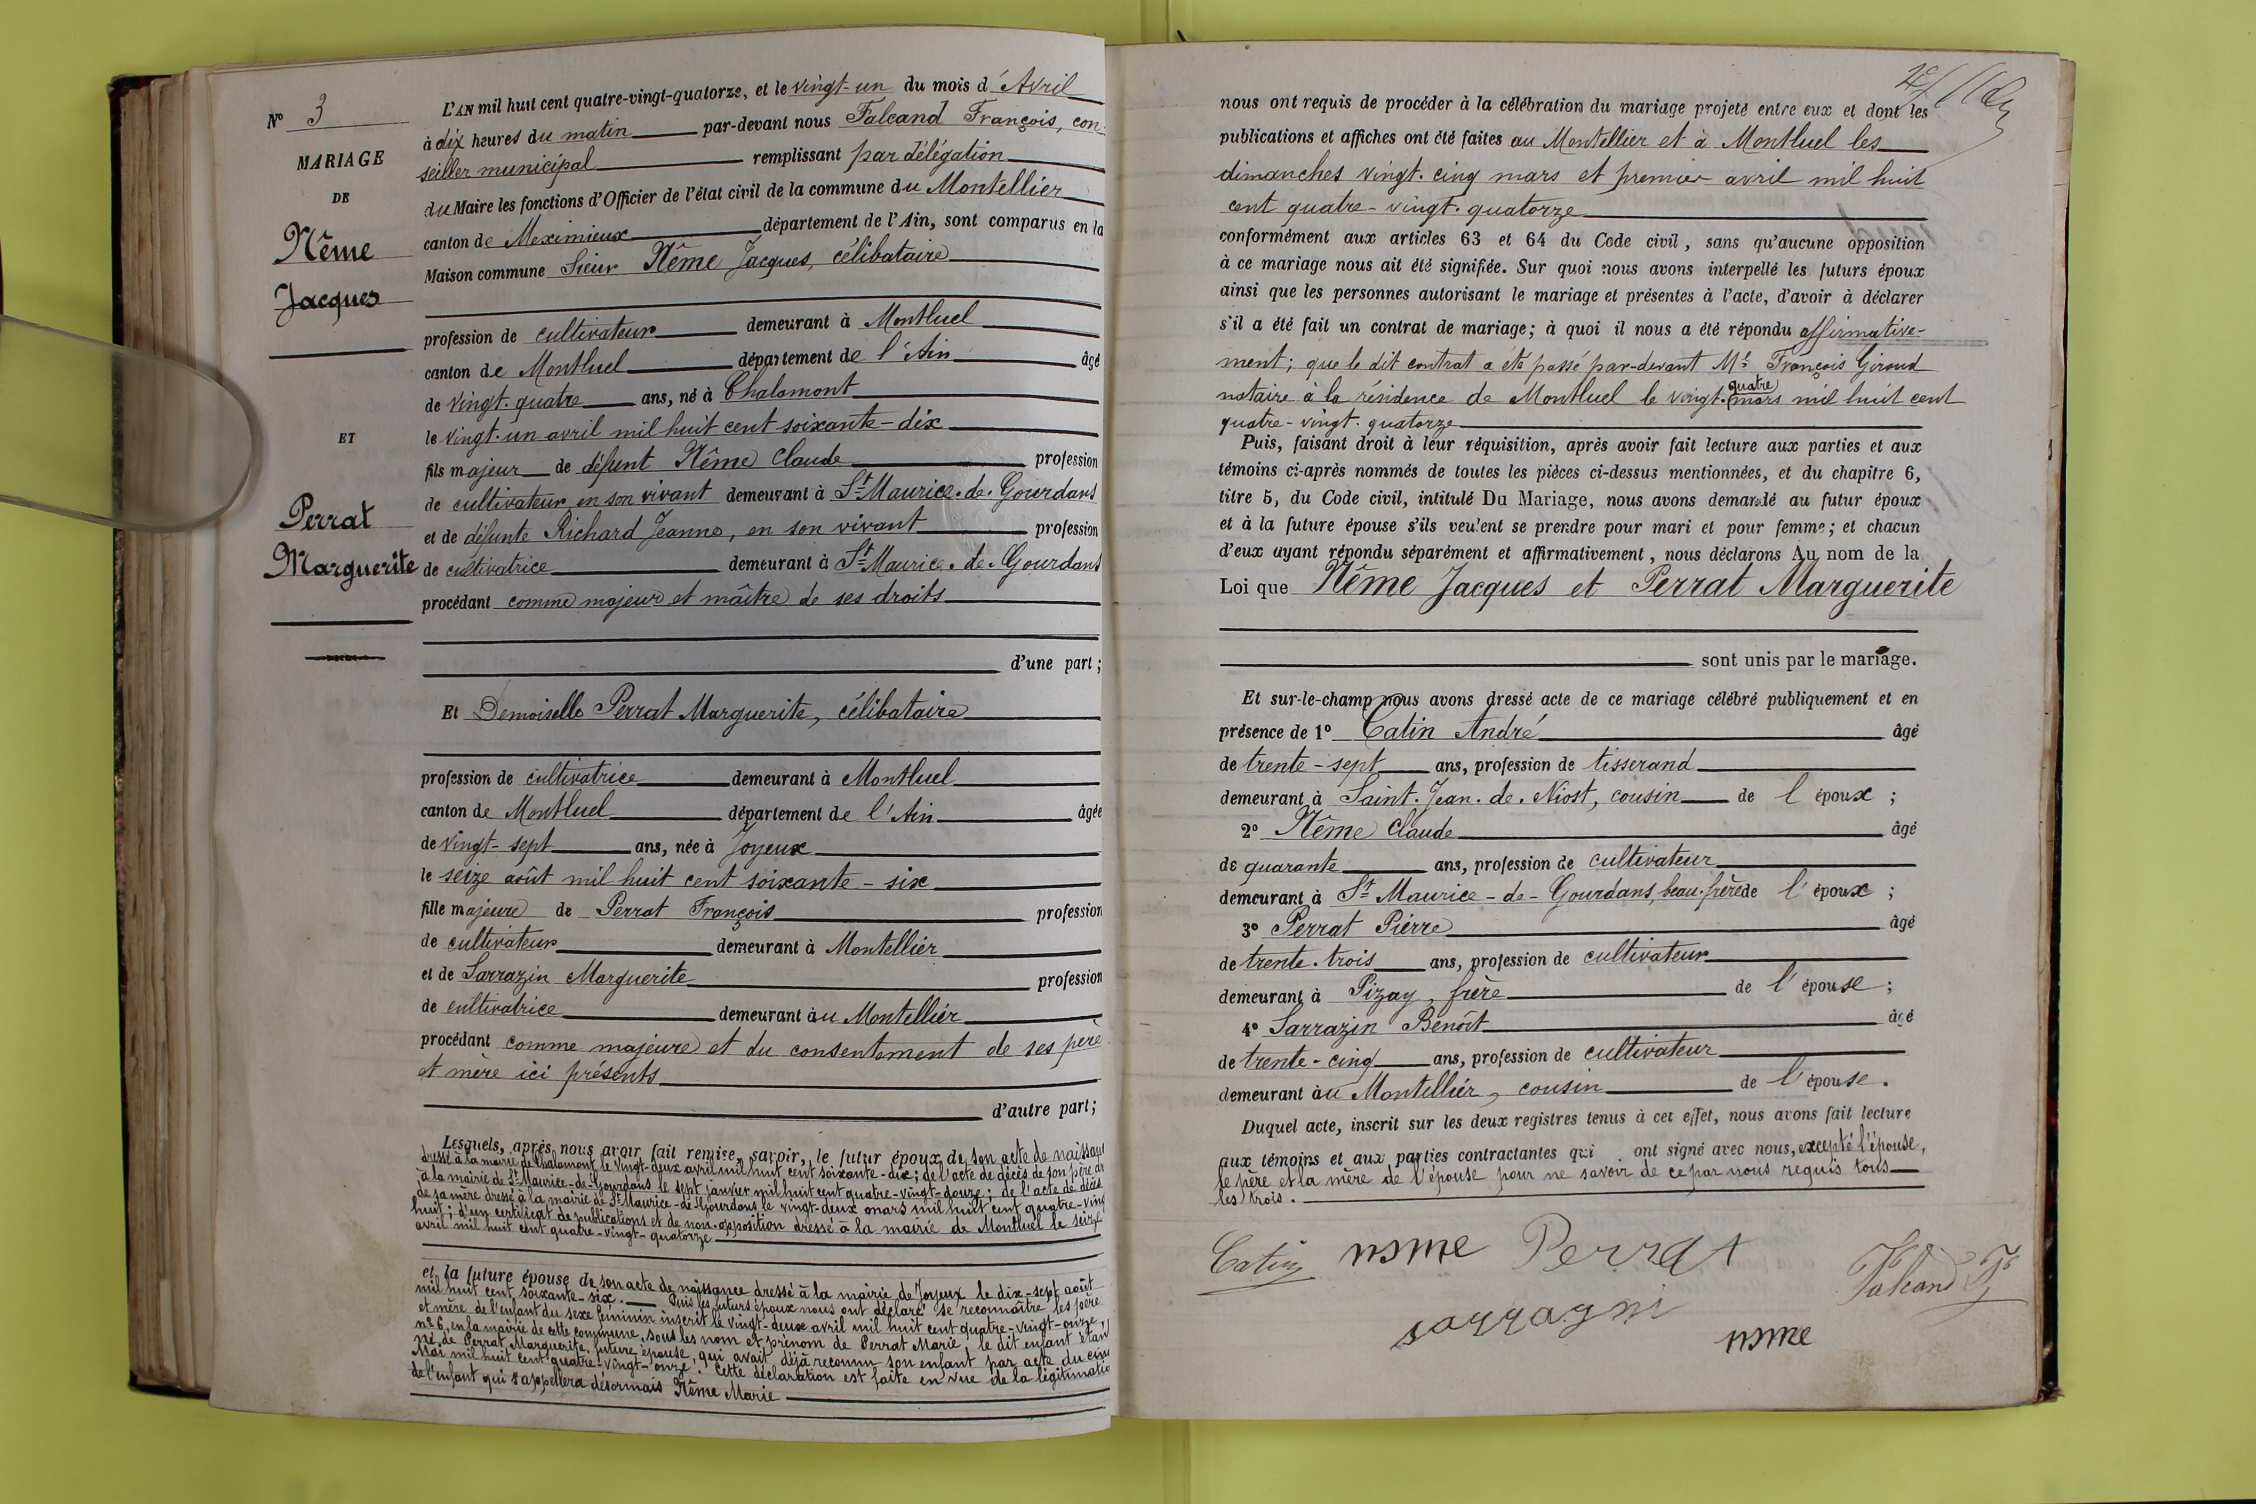 N° 3
MARIAGE
DE
Nême
Jacques
ET
Perrat
Marguerite
L'AN mil huit cent quatre-vingt-quatorze, et le vingt-un du mois d'Avril
à dix heures du matin par-devant nous Falcand François, con-
seiller municipal remplissant par délégation
du Maire les fonctions d'Officier de l'état civil de la commune du Montellier
canton de Meximieux département de l'Ain, sont comparus en la
Maison commune Sieur Nême Jacques, célibataire
profession de cultivateur demeurant à Montluel
canton de Montluel département de l'Ain âgé
de vingt-quatre ans, né à Chalamont
le vingt-un avril mil huit cent soixante-dix
fils majeur de défunt Nême Claude profession
de cultivateur en son vivant demeurant à St Maurice-de-Gourdans
et de défunte Richard Jeanne, en son vivant profession
de cultivatrice demeurant à St Maurice-de-Gourdans
procédant comme majeur et maître de ses droits
d'une part;
Et Demoiselle Perrat Marguerite, célibataire
profession de cultivatrice demeurant à Montluel
canton de Montluel département de l'Ain âgée
de vingt-sept ans, née à Joyeux
le seize août mil huit cent soixante-six
fille majeure de Perrat François profession
de cultivateur demeurant à Montellier
et de Sarrazin Marguerite profession
de cultivatrice demeurant àu Montellier
procédant comme majeure et du consentement de ses père
et mère ici présents
d'autre part;
Lesquels, après nous avoir fait remise, savoir, le futur époux de son acte de naissance
dressé à la mairie de Chalamont le vingt-deux avril mil huit cent soixante-dix; de l'acte de décès de son père
à la mairie de St Maurice-de-Gourdans le sept janvier mil huit cent quatre-vingt-douze; de l'acte de décès
de sa mère dressé à la mairie de St Maurice-de-Gourdans le vingt-deux mars mil huit cent quatre-vingt
huit; d'un certificat de publications et de non-opposition dressé à la mairie de Montluel le seize
avril mil huit cent quatre-vingt-quatorze
et la future épouse de son acte de naissance dressé à la mairie de Joyeux le dix-sept août
mil huit cent soixante-six. Puis les futurs époux nous ont déclaré se reconnaître les père
et mère de l'enfant du sexe féminin inscrit le vingt-deux avril mil huit cent quatre-vingt-onze,
n° 6, en la mairie de cette commune, sous les nom et prénom de Perrat Marie, le dit enfant étant
né de Perrat Marguerite, future épouse, qui avait déjà reconnu son enfant par acte du cinq
Mai mil huit cent quatre-vingt-onze. Cette déclaration est faite en vue de la légitimation
de l'enfant qui s'appellera désormais Nême Marie
nous ont requis de procéder à la célébration du mariage projeté entre eux et dont les
publications et affiches ont été faites au Montellier et à Montluel les
dimanches vingt-cinq mars et premier avril mil huit
cent quatre-vingt-quatorze
conformément aux articles 63 et 64 du Code civil, sans qu'aucune opposition
à ce mariage nous ait été signifiée. Sur quoi nous avons interpellé les futurs époux
ainsi que les personnes autorisant le mariage et présentes à l'acte, d'avoir à déclarer
s'il a été fait un contrat de mariage; à quoi il nous a été répondu affirmative-
ment; que le dit contrat a été passé par-devant Me François Giroud
notaire à la résidence de Montluel le vingt-quatre mars mil huit cent
quatre-vingt-quatorze
Puis, faisant droit à leur réquisition, après avoir fait lecture aux parties et aux
témoins ci-après nommés de toutes les pièces ci-dessus mentionnées, et du chapitre 6,
titre 5, du Code civil, intitulé Du Mariage, nous avons demandé au futur époux
et à la future épouse s'ils veulent se prendre pour mari et pour femme; et chacun
d'eux ayant répondu séparément et affirmativement, nous déclarons Au nom de la
Loi que Nême Jacques et Perrat Marguerite
sont unis par le mariage.
Et sur-le-champ nous avons dressé acte de ce mariage célébré publiquement et en
présence de 1° Catin André âgé
de trente-sept ans, profession de tisserand
demeurant à Saint-Jean-de-Niost, cousin de l'époux;
2° Nême Claude âgé
de quarante ans, profession de cultivateur
demeurant à St Maurice-de-Gourdans, beau-frère de l'époux;
3° Perrat Pierre âgé
de trente-trois ans, profession de cultivateur
demeurant à Pizay, frère de l'épouse;
4° Sarrazin Benoît âgé
de trente-cinq ans, profession de cultivateur
demeurant àu Montellier, cousin de l'épouse.
Duquel acte, inscrit sur les deux registres tenus à cet effet, nous avons fait lecture
aux témoins et aux parties contractantes qui ont signé avec nous, excepté l'épouse,
le père et la mère de l'épouse pour ne savoir de ce par nous requis tous
les trois.
Catin nsme Perrat
Falcand Fs
sarragni
nsme